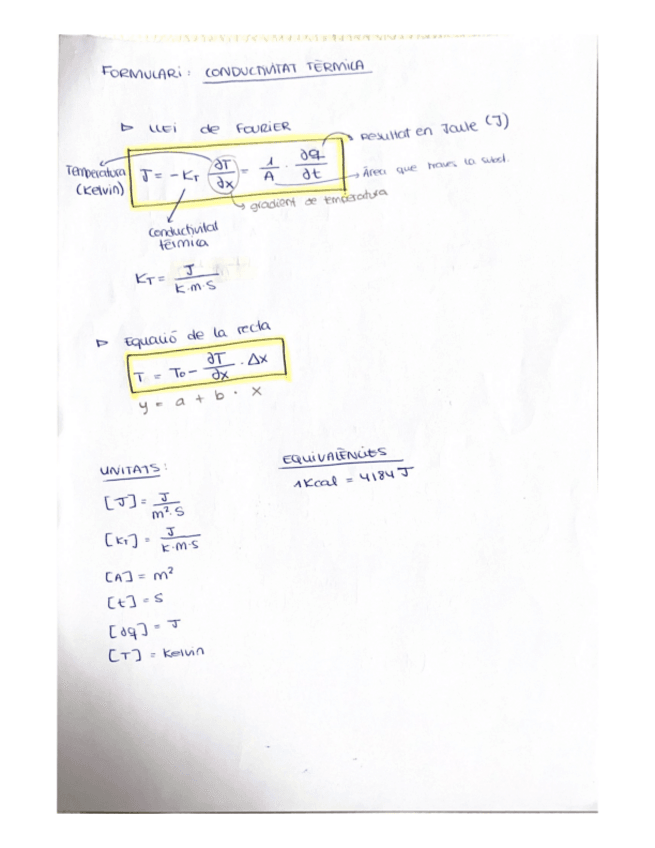 FORMULARI: CONDUCTIVITAT TÈRMICA
▷ LLEI de FOURIER
Resultat en Joule (J)
Temperatura (Kelvin)
J = -K_T ∂T/∂x = 1/A · ∂q/∂t
Àrea que traves la subst.
gradient de temperatura
Conductivitat tèrmica
K_T = J/K·m·s
▷ Equació de la recta
T = T₀ - ∂T/∂x · Δx
y = a + b · x
UNITATS:
[J] = J/m²·s
[K_T] = J/K·m·s
[A] = m²
[t] = s
[∂q] = J
[T] = Kelvin
EQUIVALÈNCIES
1Kcal = 4184 J